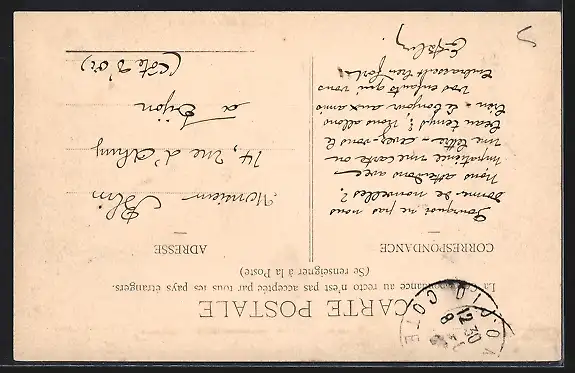 CARTE POSTALE
La Correspondance au recto n'est pas acceptée par tous les pays étrangers.
(Se renseigner à la Poste)
CORRESPONDANCE
ADRESSE
Pourquoi ne pas nous
donner de nouvelles?
Nous attendons avec
impatience une carte ou
une lettre - avez-vous le
beau temps? Nous allons
bien - Le bonjour aux amis
Vos enfants qui vous
embrassent bien fort.
Monsieur Blin
14, rue d'Ahuy
à Dijon
(Côte d'Or)
DIJON
12 30
8
COTE D'OR